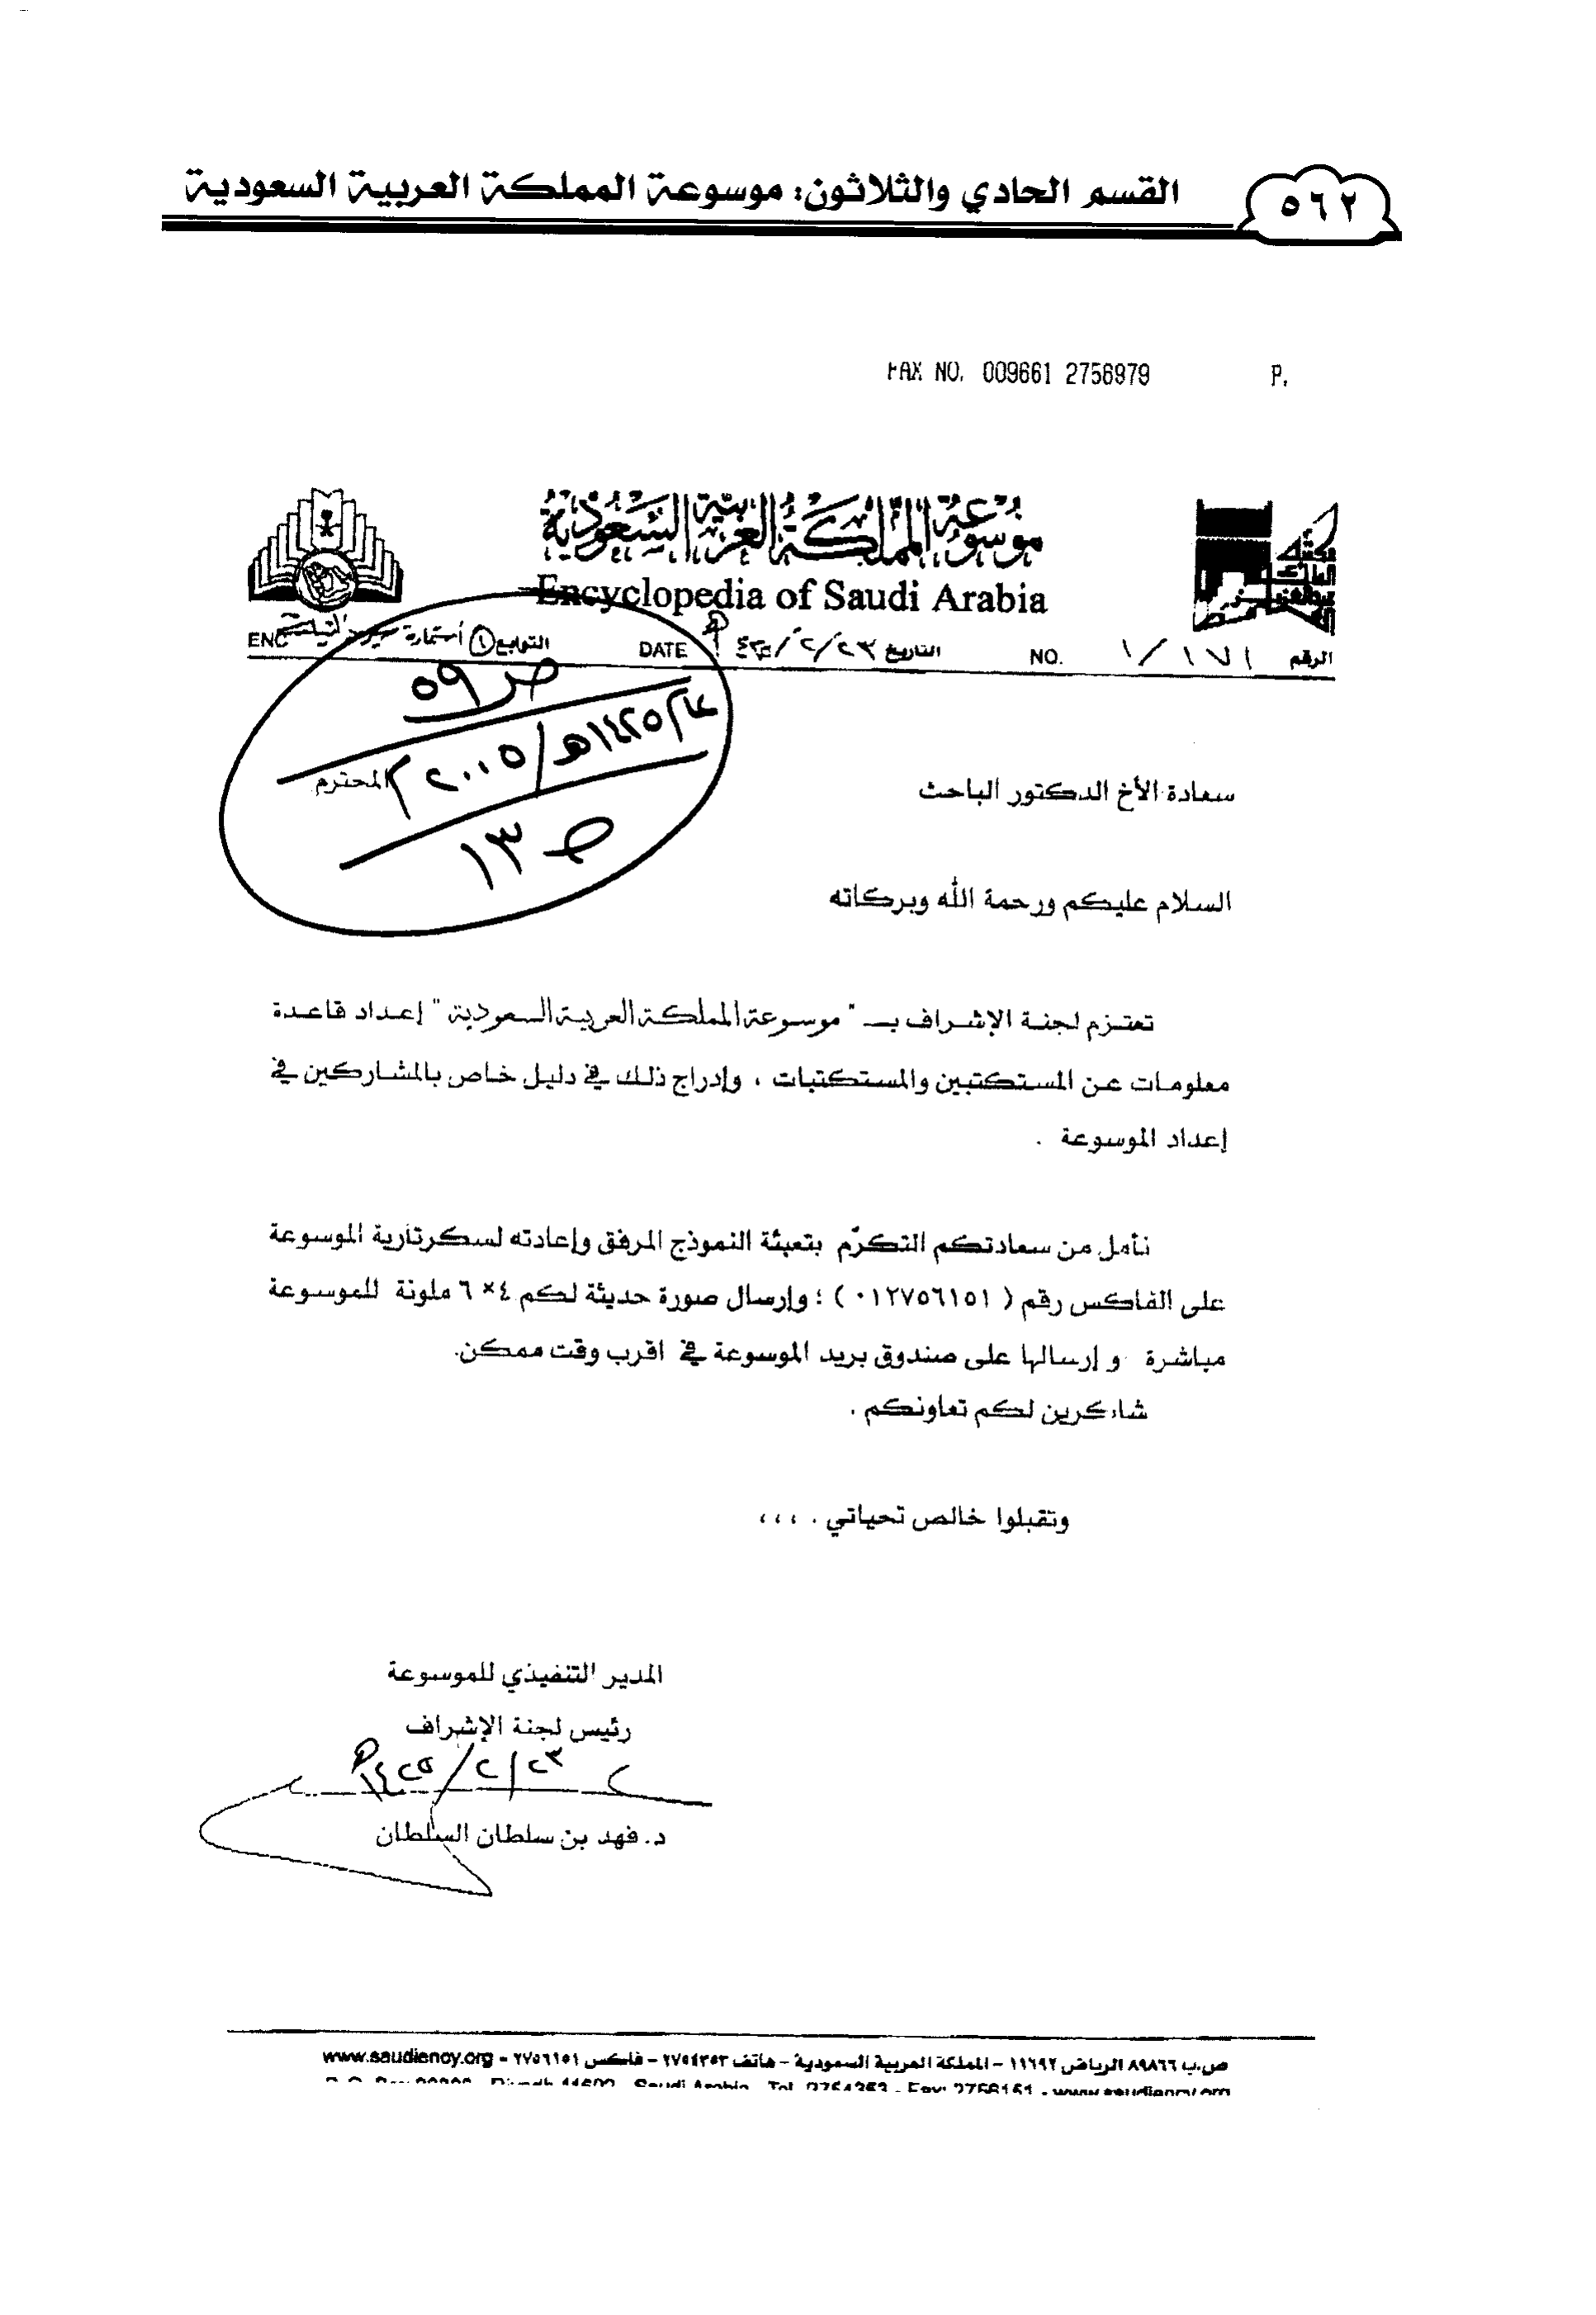 القسم الحادي والثلاثون: موسوعة المملكة العربية السعودية
٥٦٢
FAX NO. 009661 2756979 P.
موسوعة المملكة العربية السعودية
Encyclopedia of Saudi Arabia
مكتبة الملك عبدالعزيز العامة
الرقم ١/١٧١ NO. التاريخ ٢٣/٢/١٤٢٥هـ DATE التوابع ١ استمارة ENC
ص ٥٩
عام ١٤٢٥هـ/٢٠٠٥م
ص ١٣
سعادة الأخ الدكتور الباحث المحترم
السلام عليكم ورحمة الله وبركاته
تعتزم لجنة الإشراف بـ " موسوعة المملكة العربية السعودية " إعداد قاعدة
معلومات عن المستكتبين والمستكتبات ، وإدراج ذلك في دليل خاص بالمشاركين في
إعداد الموسوعة .
نأمل من سعادتكم التكرّم بتعبئة النموذج المرفق وإعادته لسكرتارية الموسوعة
على الفاكس رقم ( ٠١٢٧٥٦١٥١ ) ؛ وإرسال صورة حديثة لكم ٤×٦ ملونة للموسوعة
مباشرة و إرسالها على صندوق بريد الموسوعة في اقرب وقت ممكن.
شاكرين لكم تعاونكم .
وتقبلوا خالص تحياتي . ، ، ،
المدير التنفيذي للموسوعة
رئيس لجنة الإشراف
٢٣/٢/١٤٢٥هـ
د. فهد بن سلطان السلطان
ص.ب ٨٩٨٦٦ الرياض ١١٦٩٢ – المملكة العربية السعودية – هاتف ٢٧٥٤٣٥٣ – فاكس ٢٧٥٦١٥١ – www.saudiency.org
Riyadh 11692 - Saudi Arabia - Tel. 2754353 - Fax: 2756151 - www.saudiency.org